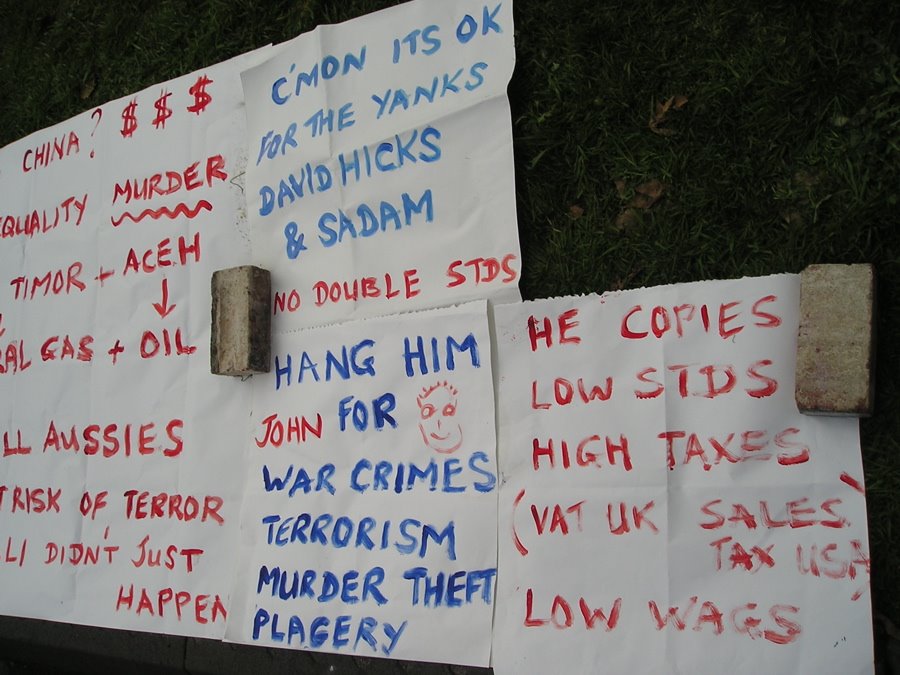 CHINA? $ $ $
EQUALITY MURDER
TIMOR + ACEH
RAL GAS + OIL
LL AUSSIES
T RISK OF TERROR
LI DIDN'T JUST
HAPPEN
C'MON ITS OK
FOR THE YANKS
DAVID HICKS
& SADAM
NO DOUBLE STDS
HANG HIM
JOHN FOR
WAR CRIMES
TERRORISM
MURDER THEFT
PLAGERY
HE COPIES
LOW STDS
HIGH TAXES
(VAT UK SALES
TAX USA)
LOW WAGS